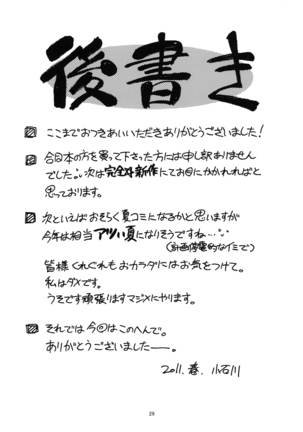 後書き
ここまでおつきあいいただきありがとうございました!
合同本の方を買って下さった方には申し訳ありません
でした…次は完全な新作にてお目にかかれればと
思っております。
次といえばおそらく夏コミになるかと思いますが
今年は相当アツい夏になりそうですね…
(計画停電的なイミで)
皆様くれぐれもおカラダにはお気をつけて。
私はダメです。
うそです頑張りますマジメにやります。
それでは今回はこのへんで。
ありがとうございましたー。
2011. 春. 小石川
29